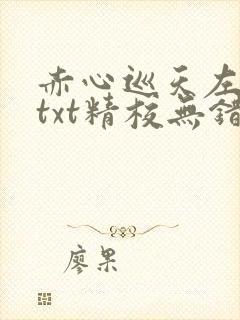 赤心巡天左
txt精校無錯
廖果